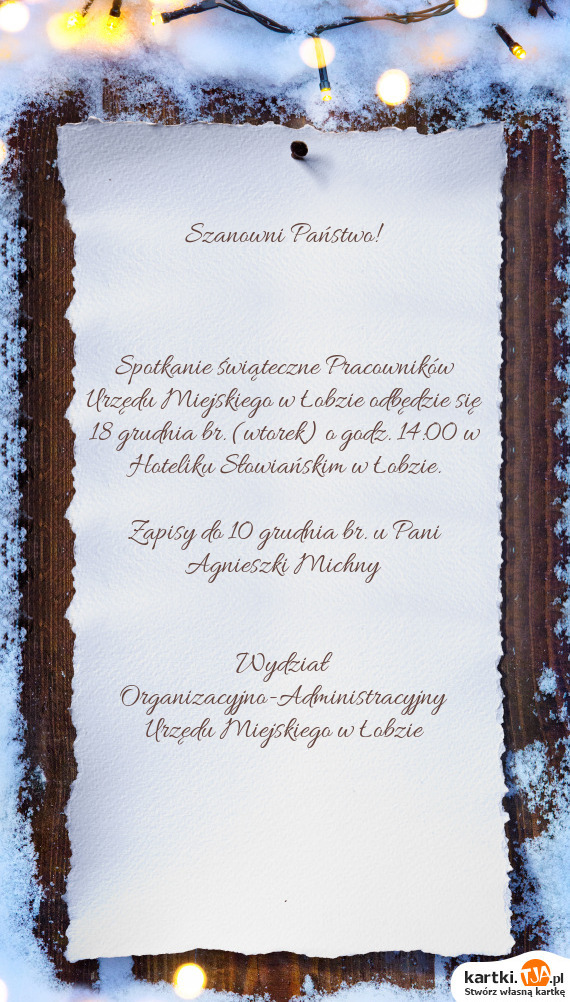 Szanowni Państwo!
Spotkanie świąteczne Pracowników
Urzędu Miejskiego w Łobzie odbędzie się
18 grudnia br. (wtorek) o godz. 14.00 w
Hoteliku Słowiańskim w Łobzie.
Zapisy do 10 grudnia br. u Pani
Agnieszki Michny
Wydział
Organizacyjno-Administracyjny
Urzędu Miejskiego w Łobzie
.
kartki.TJA.pl
Stwórz własną kartkę